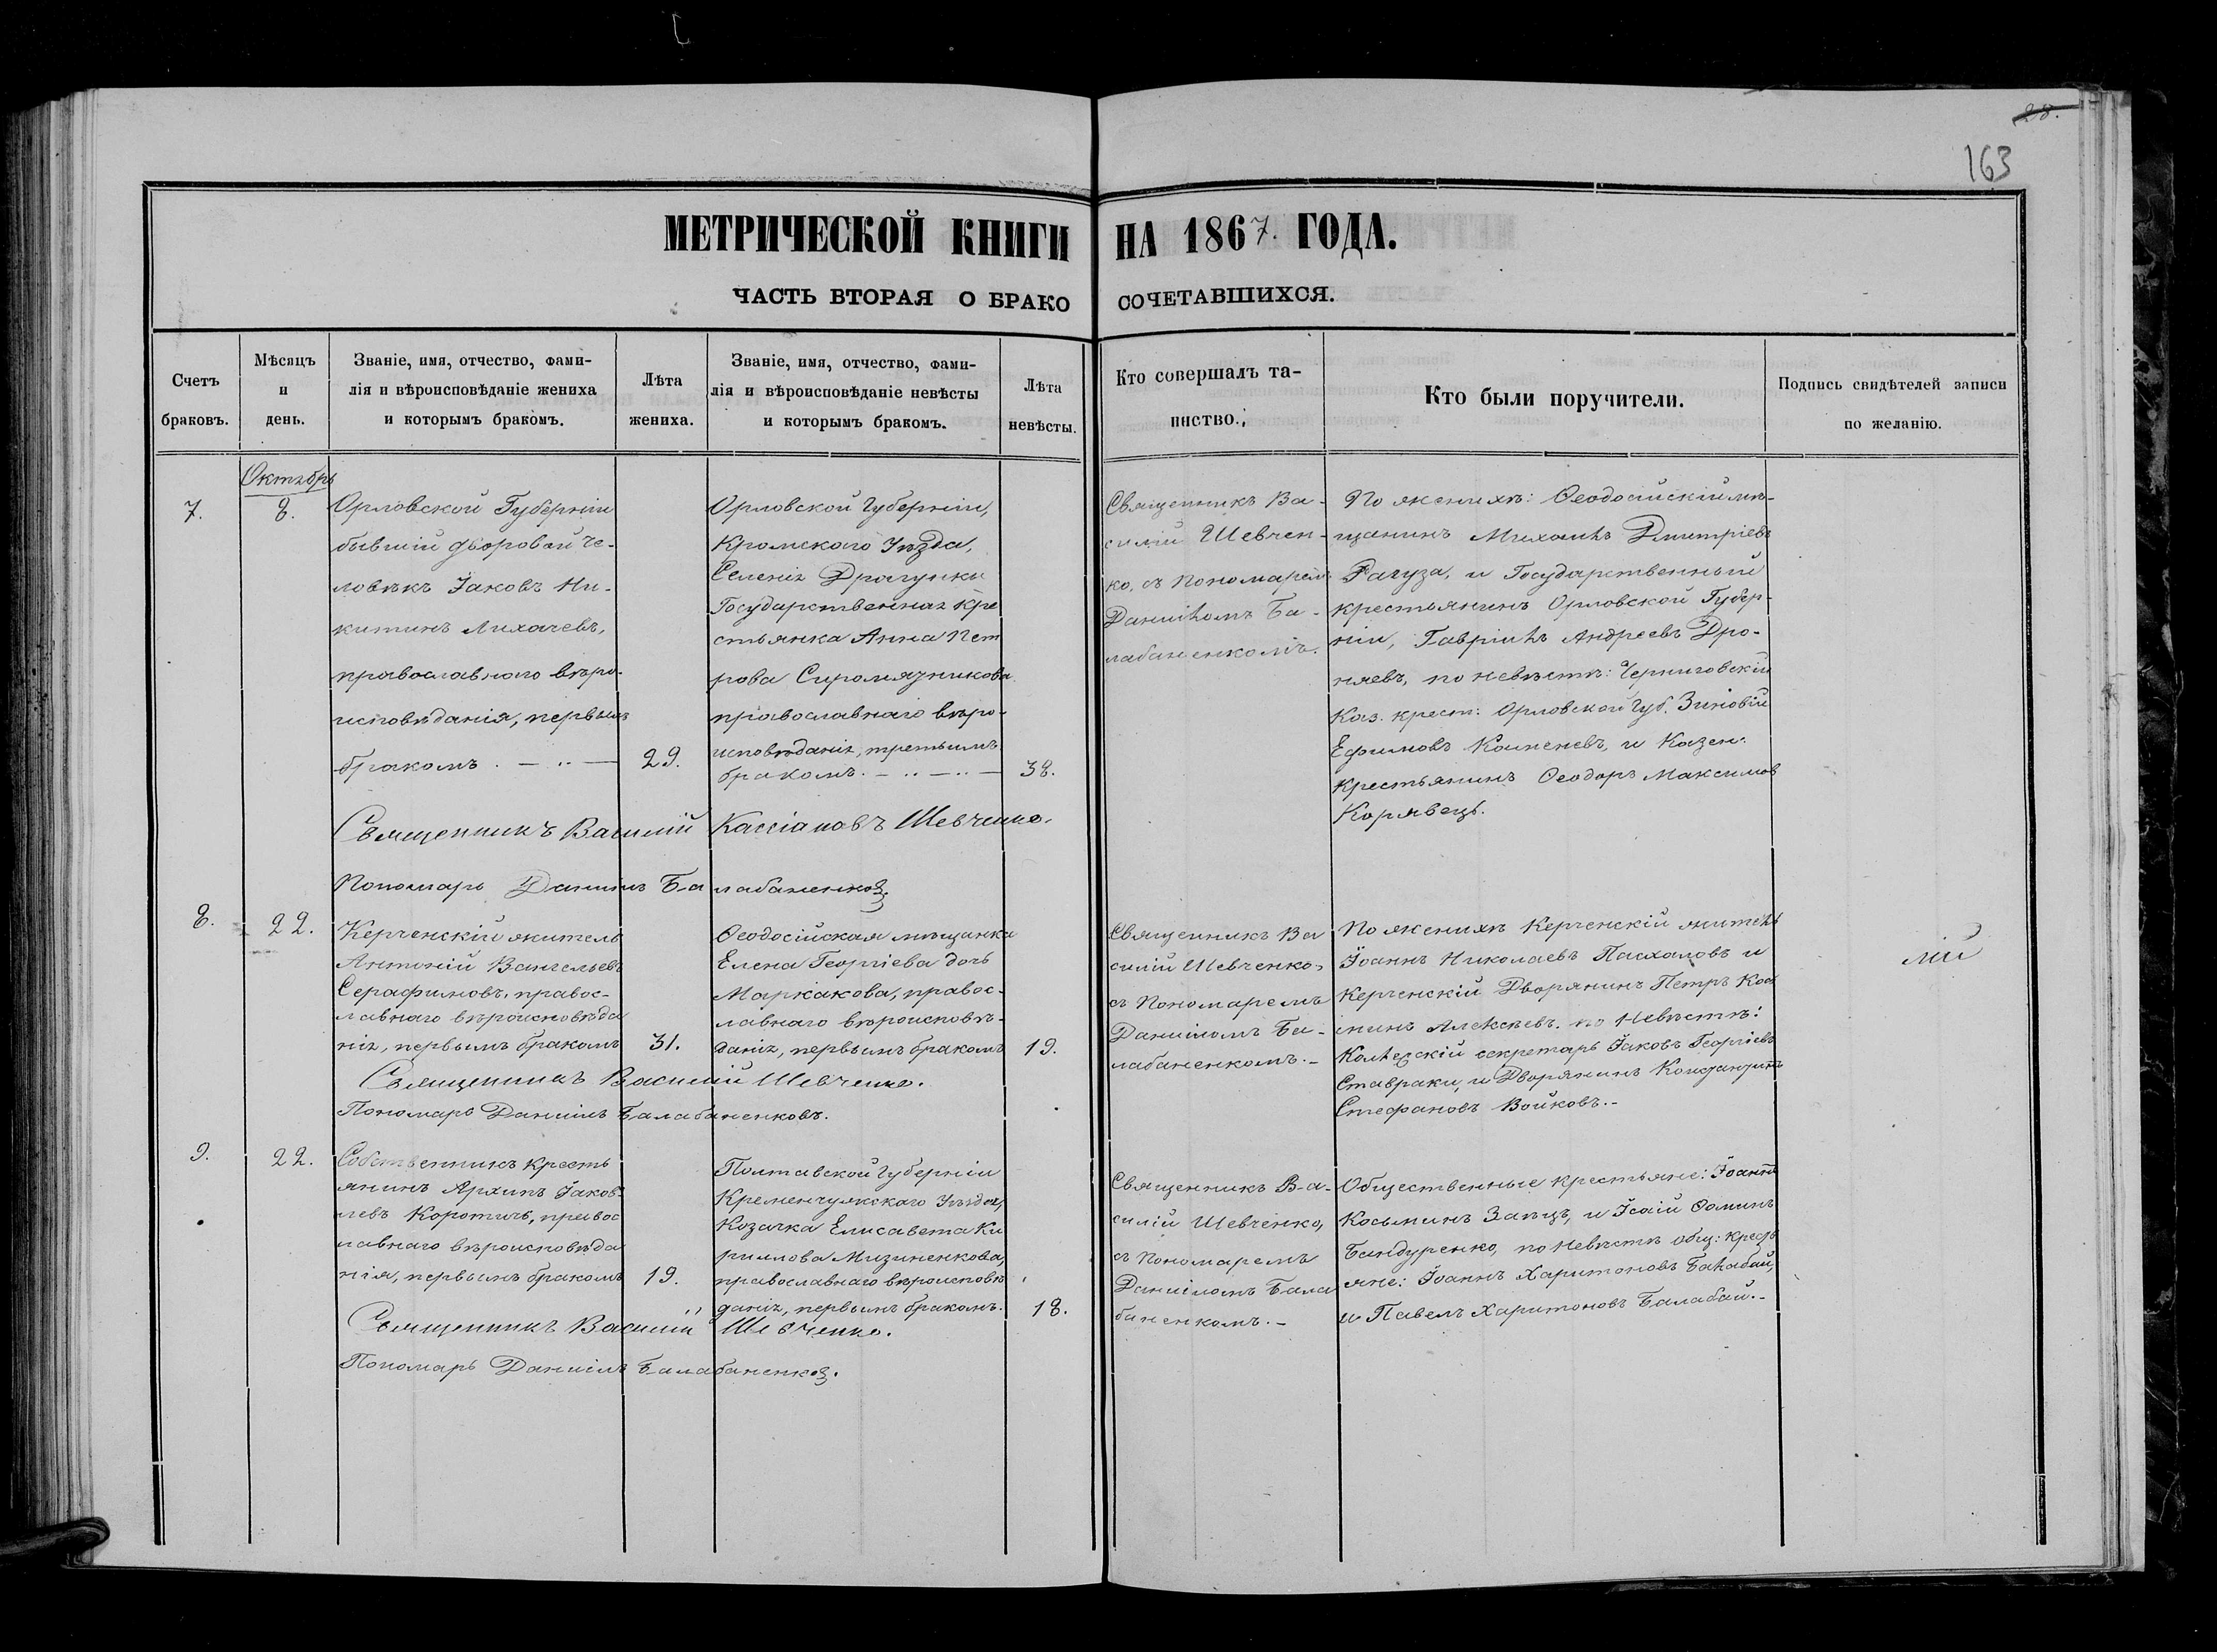 28.
163
МЕТРИЧЕСКОЙ КНИГИ НА 1867. ГОДА.
ЧАСТЬ ВТОРАЯ О БРАКО СОЧЕТАВШИХСЯ.
Счетъ
браковъ.
Мѣсяцъ
и
день.
Званіе, имя, отчество, фами-
лія и вѣроисповѣданіе жениха
и которымъ бракомъ.
Лѣта
жениха.
Званіе, имя, отчество, фами-
лія и вѣроисповѣданіе невѣсты
и которымъ бракомъ.
Лѣта
невѣсты.
Кто совершалъ та-
инство.
Кто были поручители.
Подпись свидѣтелей записи
по желанію.
Октябрь
7.
8.
Орловской Губерніи
бывшій дворовой че-
ловѣкъ Іаковъ Ни-
китинъ Лихачевъ,
православнаго вѣро-
исповѣданія, первымъ
бракомъ
29.
Орловской Губерніи,
Кромскаго Уѣзда,
Селенія Драгунки
Государственная кре
стьянка Анна Пет
рова Сыромязникова
православнаго вѣро-
исповѣданія, третьимъ
бракомъ
38.
Священникъ Ва-
силій Шевчен-
ко, съ Пономарем
Даніиломъ Ба-
лабаненкомъ.
По женихѣ: Ѳеодосійскій мѣ-
щанинъ Михаилъ Дмитріевъ
Рагуза, и Государственный
крестьянинъ Орловской Губер-
ніи, Гавріилъ Андреевъ Дро-
няевъ, по невѣстѣ: Черниговскій
Каз. крест: Орловской Губ. Зиновій
Ефимовъ Каменевъ, и Казен.
Крестьянинъ Ѳеодоръ Максимов
Корявецъ.
Священникъ Василій Кассіановъ Шевченко.
Пономарь Даніилъ Балабаненковъ.
8.
22.
Керченскій житель
Антоній Вангельевъ
Серафимовъ, правос-
лавнаго вѣроисповѣда
нія, первымъ бракомъ
31.
Ѳеодосійская мѣщанка
Елена Георгіева дочь
Маржакова, правос-
лавнаго вѣроисповѣ-
данія, первымъ бракомъ
19.
Священникъ Ва
силій Шевченко,
съ Пономаремъ
Даніиломъ Ба-
лабаненкомъ.-
По женихѣ Керченскій житель
Іоаннъ Николаевъ Пасхаловъ и
Керченскій Дворянинъ Петръ Кос
минъ Алексѣевъ. по Невѣстѣ:
Коллежскій секретарь Іаковъ Георгіевъ
Ставраки, и Дворянинъ Константинъ
Стефановъ Войковъ.-
лій
Священникъ Василій Шевченко.
Пономарь Даніилъ Балабаненковъ.
9.
22.
Собственникъ кресть
янинъ Архипъ Іаков
левъ Коротичъ, правос
лавнаго вѣроисповѣда
нія, первымъ бракомъ
19.
Полтавской Губерніи
Кременчужскаго Уѣзда,
Козачка Елисавета Ки
риллова Мизиненкова,
православнаго вѣроисповѣ
данія, первымъ бракомъ.
18.
Священникъ Ва-
силій Шевченко,
съ Пономаремъ
Даніиломъ Бала
баненкомъ.-
Общественные крестьяне: Іоаннъ
Косьминъ Заецъ, и Исаій Ѳоминъ
Бандуренко, по Невѣстѣ общ: крест
яне: Іоаннъ Харитоновъ Балабай,
и Павелъ Харитоновъ Балабай.-
Священникъ Василій Шевченко.
Пономарь Даніилъ Балабаненковъ.